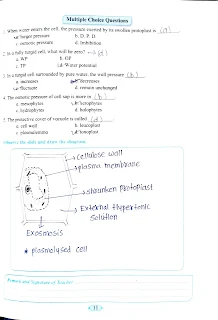 Multiple Choice Questions
1. When water enters the cell, the pressure exerted by its swollen protoplast is (a)
a. Turgor pressure b. D. P. D.
c. osmotic pressure d. Imbibition
2. In a fully turgid cell, what will be zero? (d)
a. WP b. OP
c. TP d. Water potential
3. In a turgid cell surrounded by pure water, the wall pressure (b)
a. increases b. decreases
c. fluctuate d. remain unchanged
4. The osmotic pressure of cell sap is more in (b)
a. mesophytes b. hetophytes
c. hydrophytes d. halophytes
5. The protective cover of vacuole is called (d)
a. cell wall b. leucoplast
c. plasmalemma d. tonoplast
Observe the slide and draw the diagrams
cellulose wall
plasma membrane
shrunken Protoplast
External Hypertonic
Solution
Exosmosis
plasmolysed cell
Remark and Signature of Teacher
31